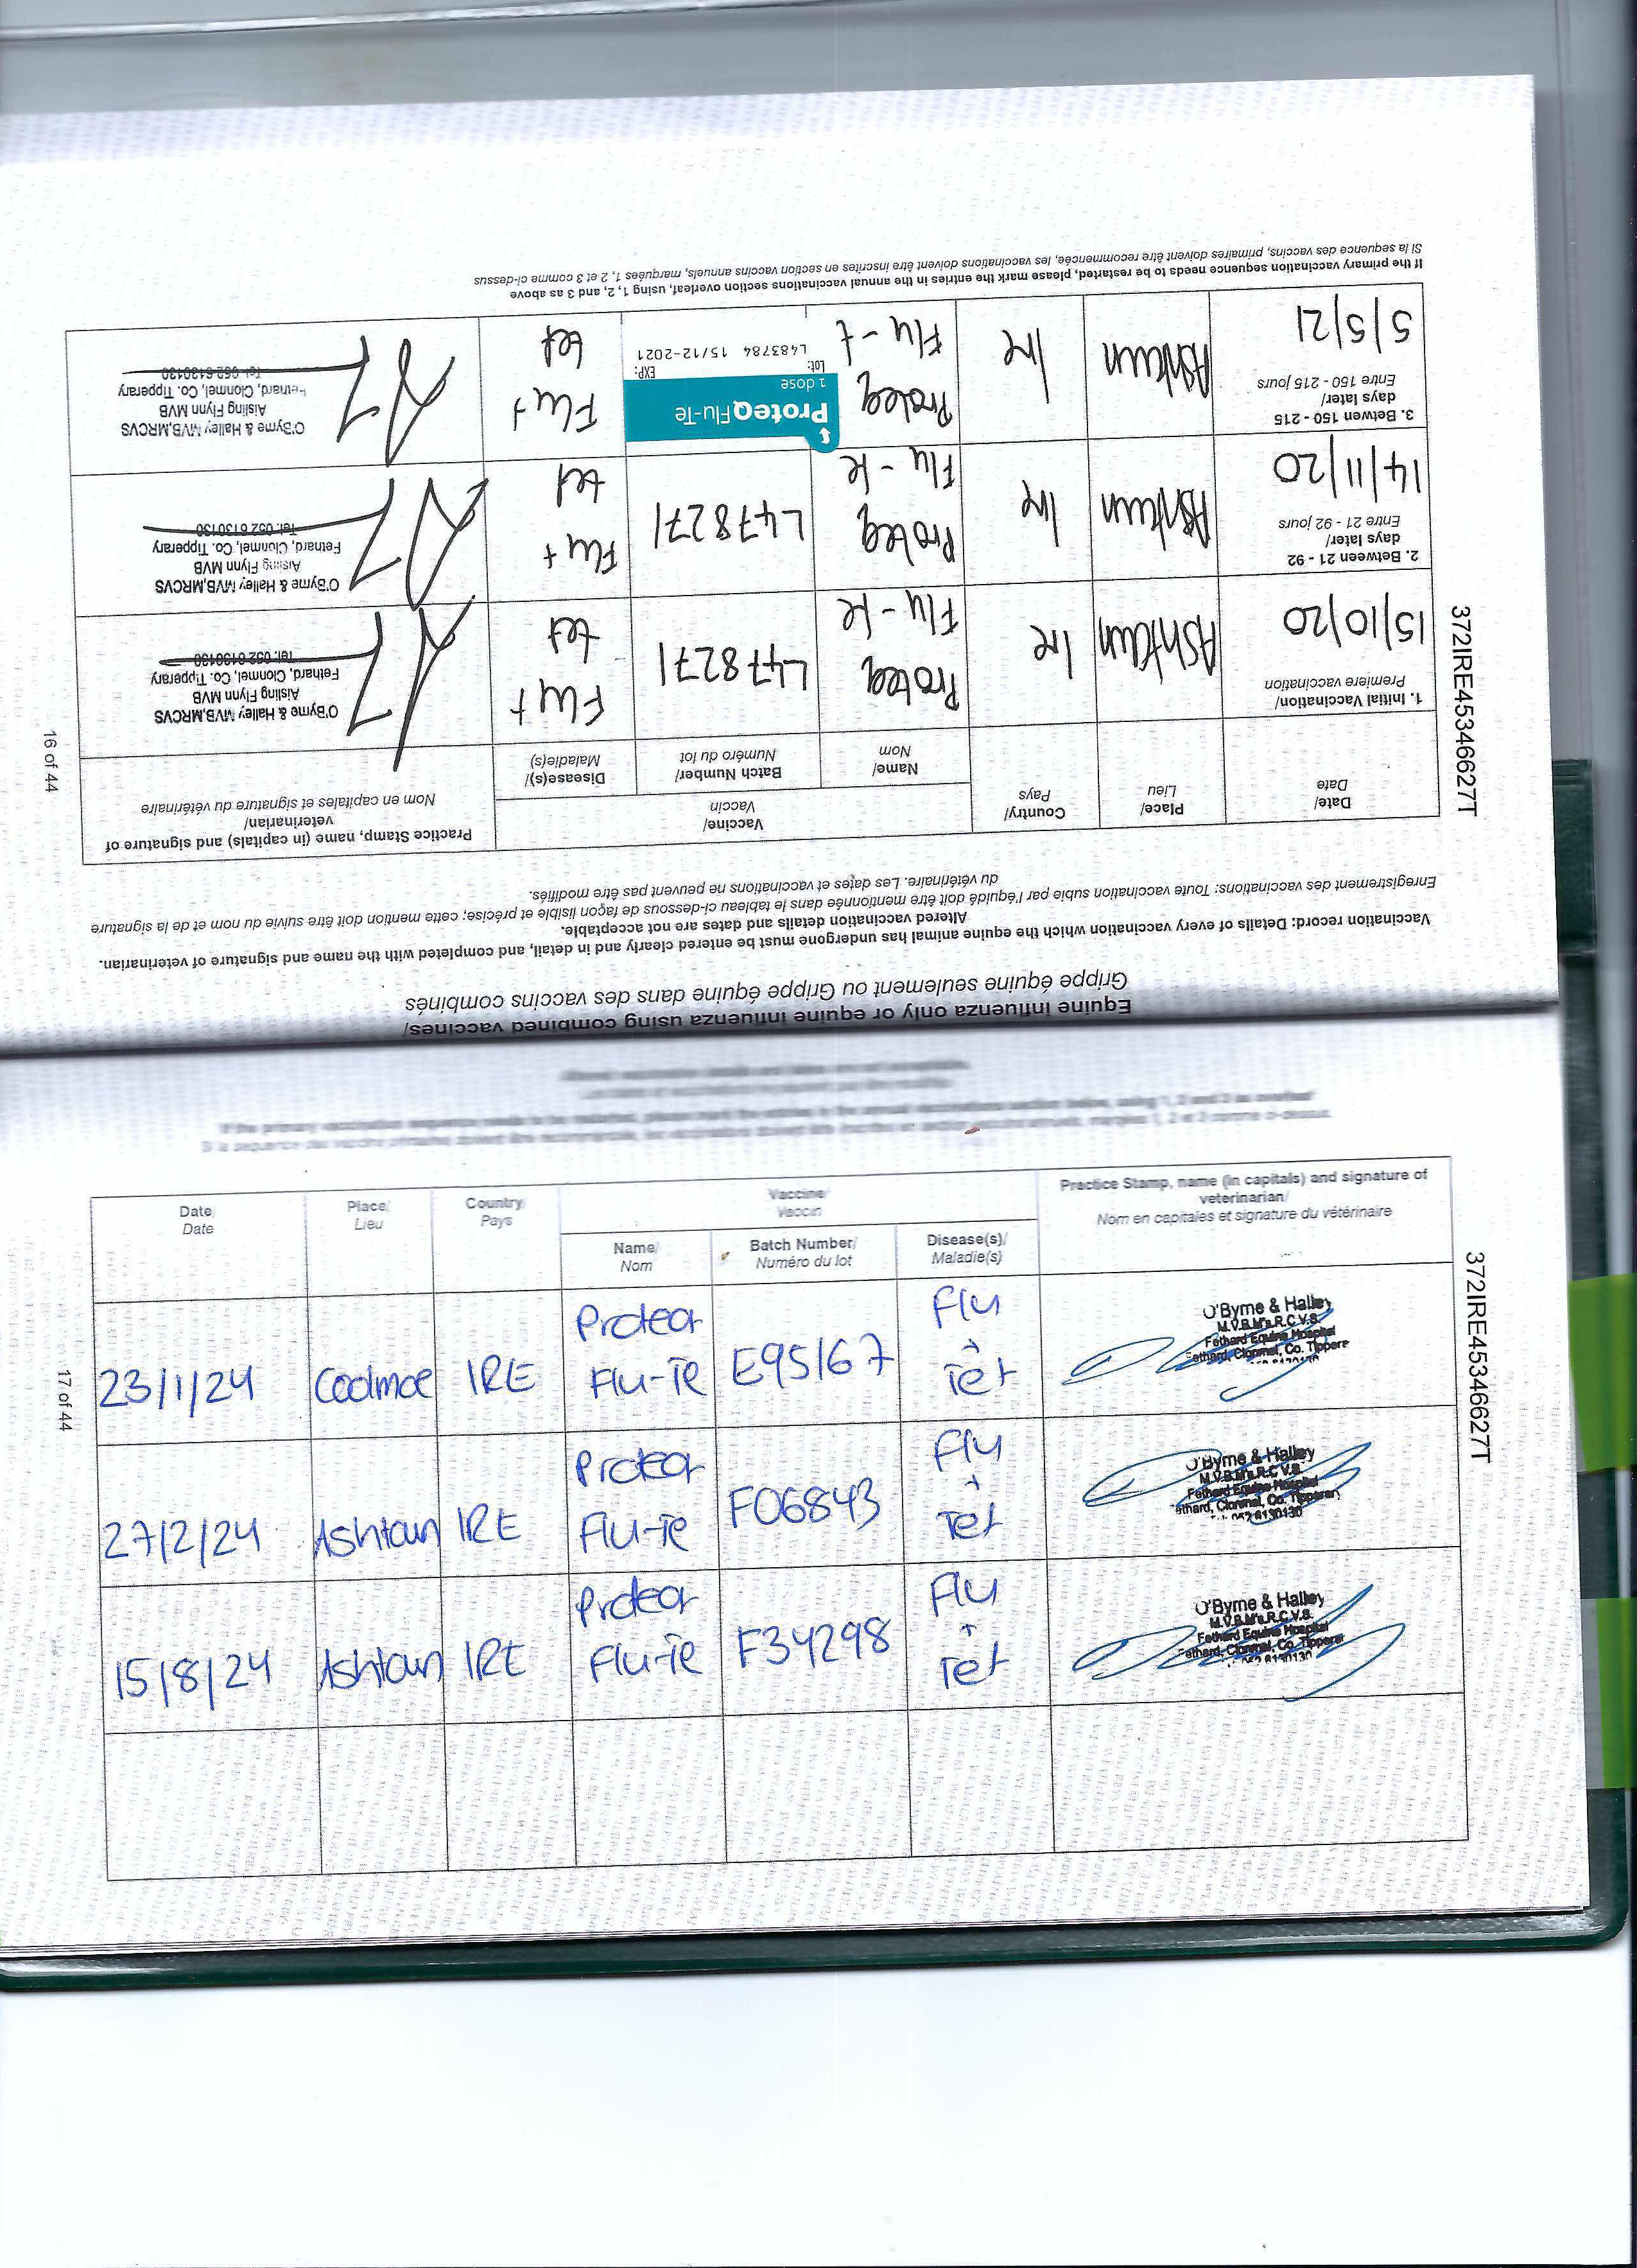 Equine influenza only or equine influenza using combined vaccines/
Grippe équine seulement ou Grippe équine dans des vaccins combinés
Vaccination record: Details of every vaccination which the equine animal has undergone must be entered clearly and in detail, and completed with the name and signature of veterinarian.
Altered vaccination details and dates are not acceptable.
Enregistrement des vaccinations: Toute vaccination subie par l'équidé doit être mentionnée dans le tableau ci-dessous de façon lisible et précise; cette mention doit être suivie du nom et de la signature
du vétérinaire. Les dates et vaccinations ne peuvent pas être modifiés.
Date/
Date
Place/
Lieu
Country/
Pays
Vaccine/
Vaccin
Name/
Nom
Batch Number/
Numéro du lot
Disease(s)/
Maladie(s)
Practice Stamp, name (in capitals) and signature of
veterinarian/
Nom en capitales et signature du vétérinaire
1. Initial Vaccination/
Premiere vaccination
15/10/20
Ashtown
Ire
Proteq
Flu-te
L478271
Flu +
tet
O'Byrne & Halley MVB,MRCVS
Aisling Flynn MVB
Fethard, Clonmel, Co. Tipperary
Tel. 052 6130130
2. Between 21 - 92
days later/
Entre 21 - 92 jours
14/11/20
Ashtown
Ire
Proteq
Flu-te
L478271
Flu +
tet
O'Byrne & Halley MVB,MRCVS
Aisling Flynn MVB
Fethard, Clonmel, Co. Tipperary
Tel. 052 6130130
3. Betwen 150 - 215
days later/
Entre 150 - 215 jours
5/5/21
Ashtown
Ire
Proteq
Flu-t
ProteqFlu-Te
1 dose
Lot: EXP:
L483784 15/12-2021
Flu +
tet
O'Byrne & Halley MVB,MRCVS
Aisling Flynn MVB
Fethard, Clonmel, Co. Tipperary
Tel. 052 6130130
If the primary vaccination sequence needs to be restarted, please mark the entries in the annual vaccinations section overleaf, using 1, 2, and 3 as above
Si la sequence des vaccins, primaires doivent être recommencée, les vaccinations doivent être inscrites en section vaccins annuels, marquées 1, 2 et 3 comme ci-dessus
372IRE45346627T
16 of 44
Date/
Date
Place/
Lieu
Country/
Pays
Vaccine/
Vaccin
Name/
Nom
Batch Number/
Numéro du lot
Disease(s)/
Maladie(s)
Practice Stamp, name (in capitals) and signature of
veterinarian/
Nom en capitales et signature du vétérinaire
23/1/24
Coolmoe
IRE
Proteq
Flu-Te
E95167
Flu
+
Tet
O'Byrne & Halley
M.V.B.M's.R.C.V.S.
Fethard Equine Hospital
Fethard, Clonmel, Co. Tipperary
27/2/24
Ashtown
IRE
Proteq
Flu-Te
F06843
Flu
+
Tet
O'Byrne & Halley
M.V.B.M's.R.C.V.S.
Fethard Equine Hospital
Fethard, Clonmel, Co. Tipperary
052 6130130
15/8/24
Ashtown
IRE
Proteq
Flu-Te
F34298
Flu
+
Tet
O'Byrne & Halley
M.V.B.M's.R.C.V.S.
Fethard Equine Hospital
Fethard, Clonmel, Co. Tipperary
052 6130130
372IRE45346627T
17 of 44